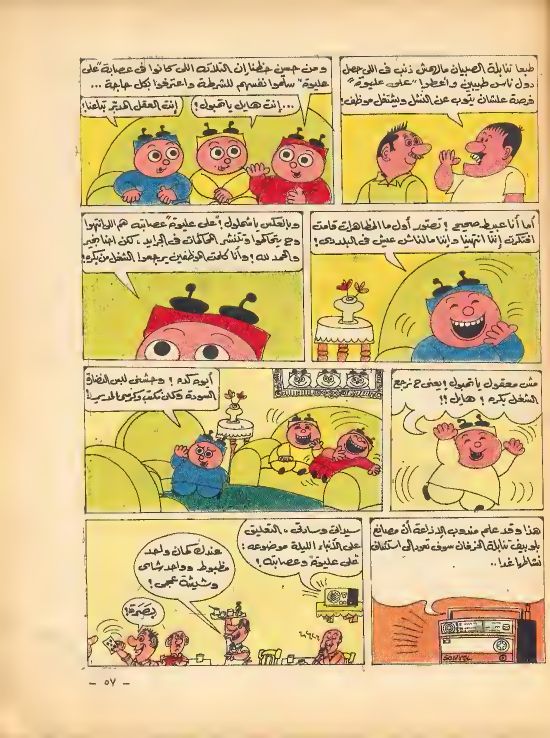 طبعا تنابلة الصبيان مالهمش ذنب فى اللى حصل
دول ناس طيبين وأعطوا "على عليوة"
فرصة علشان يتوب عن النشل ويشتغل موظف!
ومن حسن حظنا إن التلاتة اللى كانوا فى عصابة "على
عليوة" سلموا نفسهم للشرطة واعترفوا بكل حاجة ...
... إنت هايل يا تمبول!
إنت العقل المدبر بتاعنا!
أما أنا عبيط صحيح! تصور أول ما المظاهرات قامت
افتكرت إننا انتهينا وإننا مالناش عيش فى البلد دى!
وبالعكس يا شملول! "على عليوة" وعصابته هم اللى انتهوا
وح يتحاكموا وتنشر المحاكمات فى الجرايد، لكن احنا بخير
والحمد لله! وأنا كلمت الموظفين يرجعوا الشغل من بكره!
مش معقول يا تمبول! يعنى ح نرجع
الشغل بكره! هايل!!
أيوه كده! وحشنى لبس النضارة
السودة وركن مكتب وكرسى المدير!
هذا وقد علم مندوب الإذاعة أن مصانع
بلوبيف تنابلة الخرفان سوف تعود إلى استئناف
نشاطها غدا..
SONYEL
سيداتى وسادتى، التعليق
على الأنباء الليلة موضوعه:
على عليوة وعصابته!
عندك كمان واحد
مظبوط وواحد شاى
وشيشة عجمى!
بصرة!
- ٥٧ -